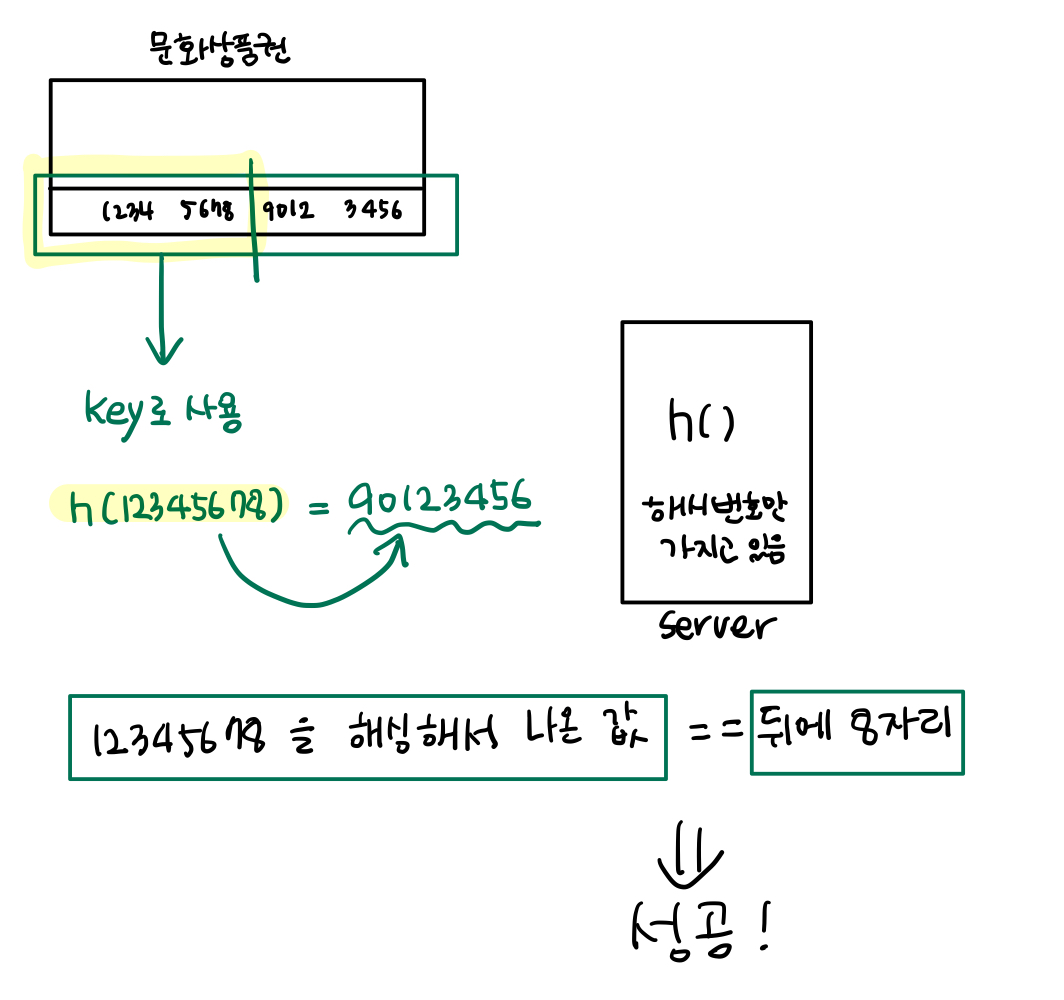 문화상품권
1234 5678 9012 3456
key로 사용
h(12345678) = 90123456
h()
해시번호만
가지고 있음
server
12345678 을 해싱해서 나온 값 == 뒤에 8자리
성공!